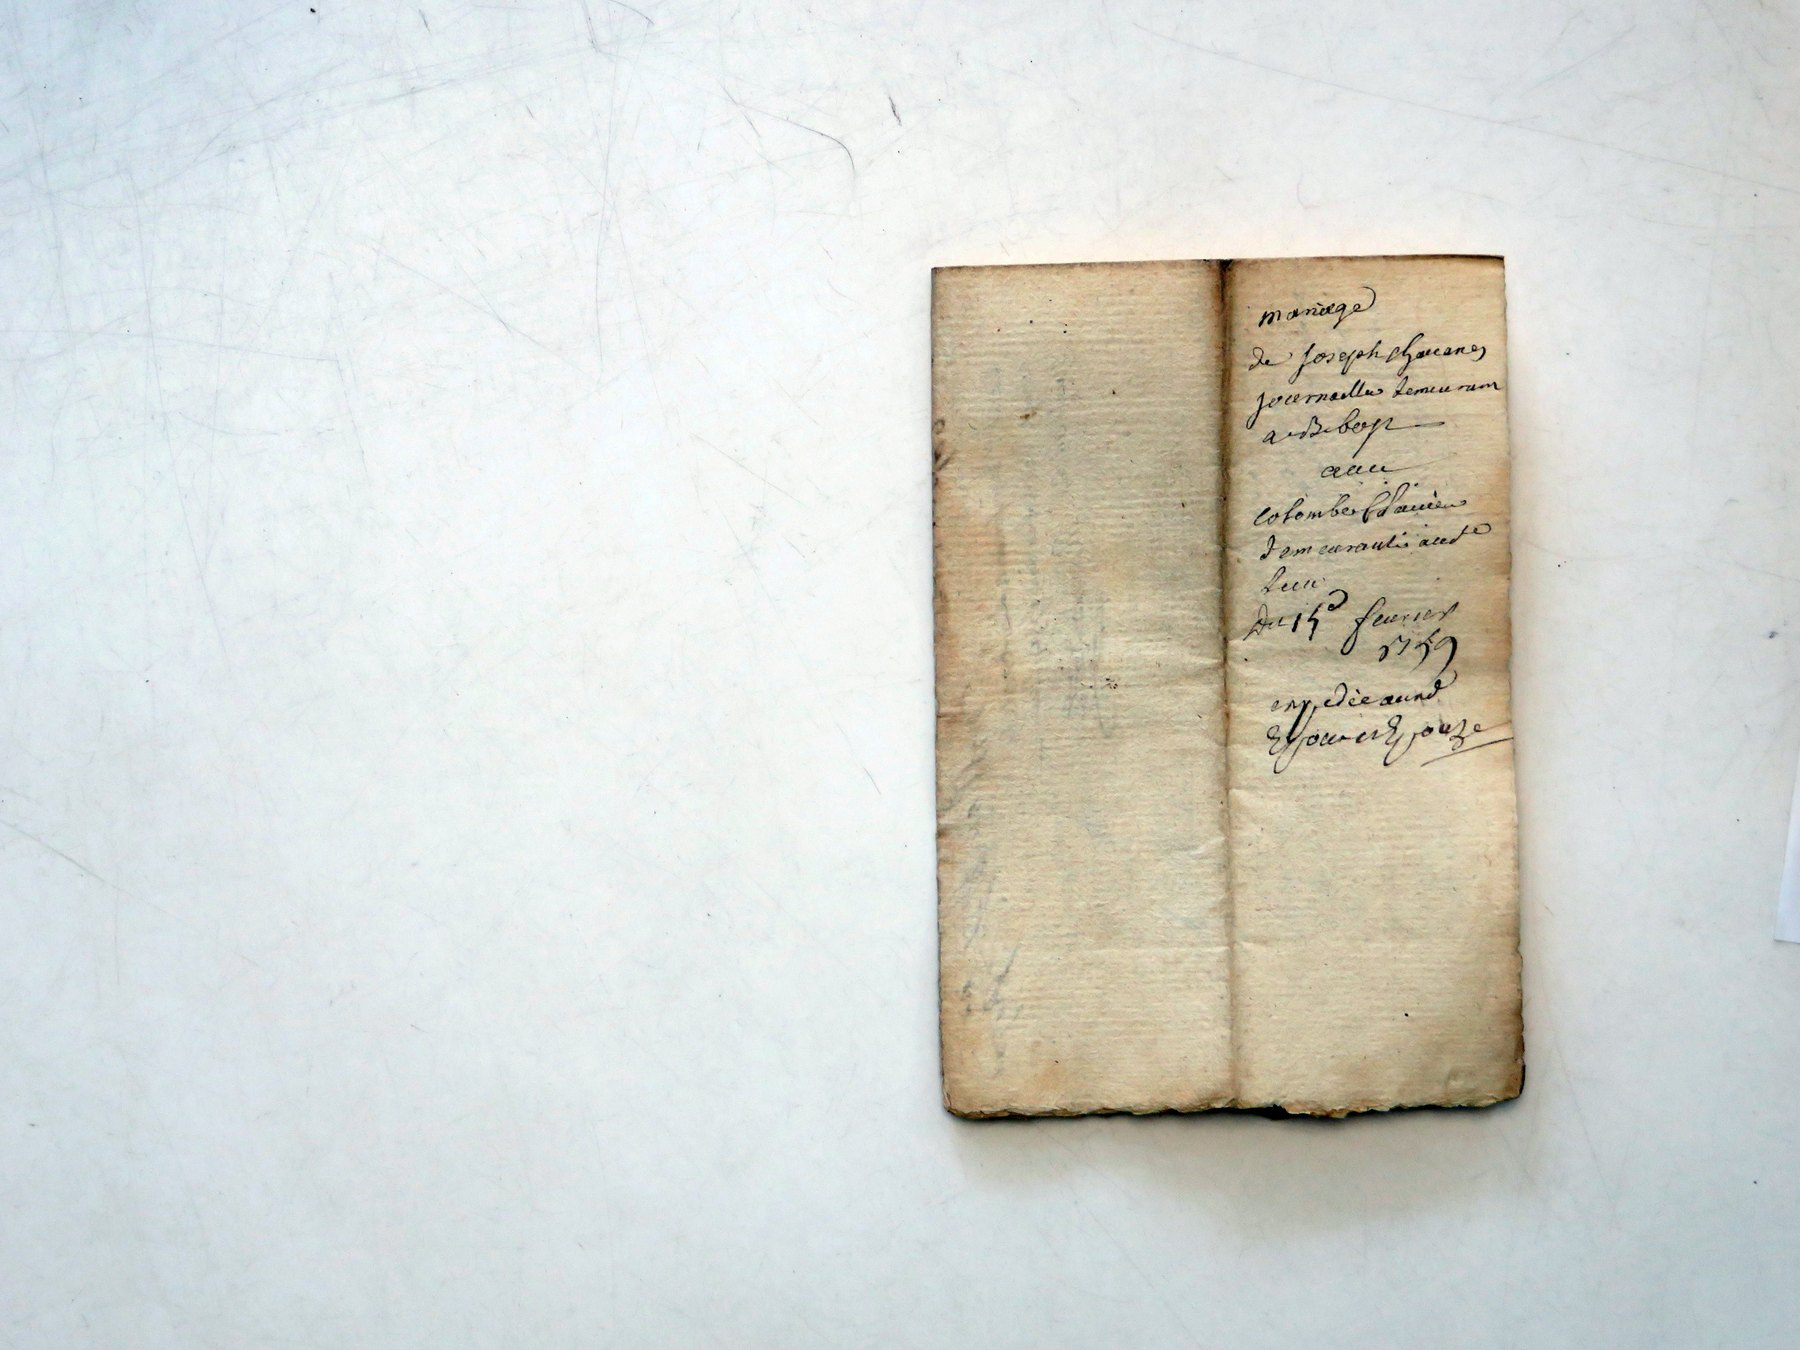 mariage
de Joseph chavanes
journallie demeurant
a
avec
colombe
demeurantie audt
lieu
Du 15e fevrier
1759
expediée aund
Epoux et Epouze